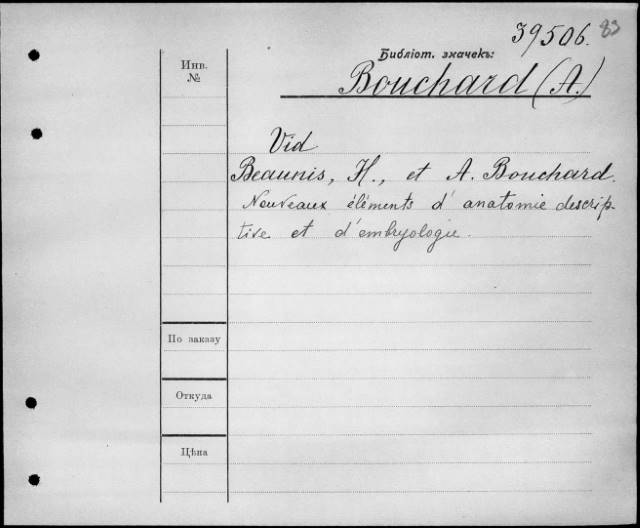 39506. 83
Библіот. значекъ:
Инв.
№
Bouchard (A.)
Vid
Beaunis, H., et A. Bouchard.
Nouveaux éléments d'anatomie descrip-
tive et d'embryologie.
По заказу
Откуда
Цѣна